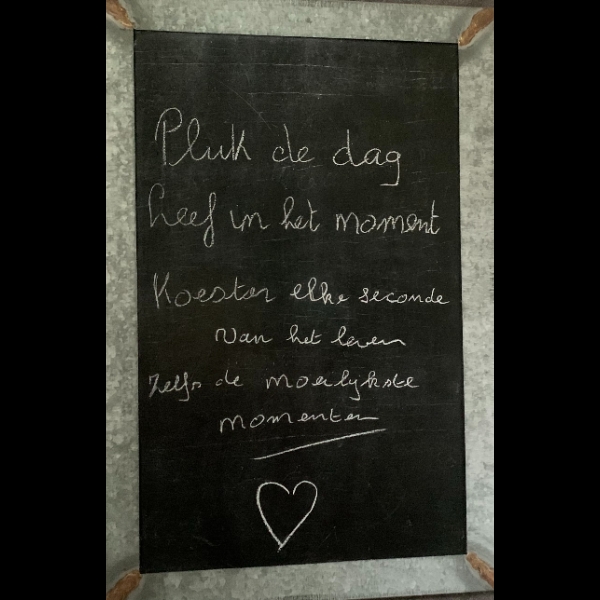 Pluk de dag
Leef in het moment
Koester elke seconde
van het leven
zelfs de moeilijkste
momenten